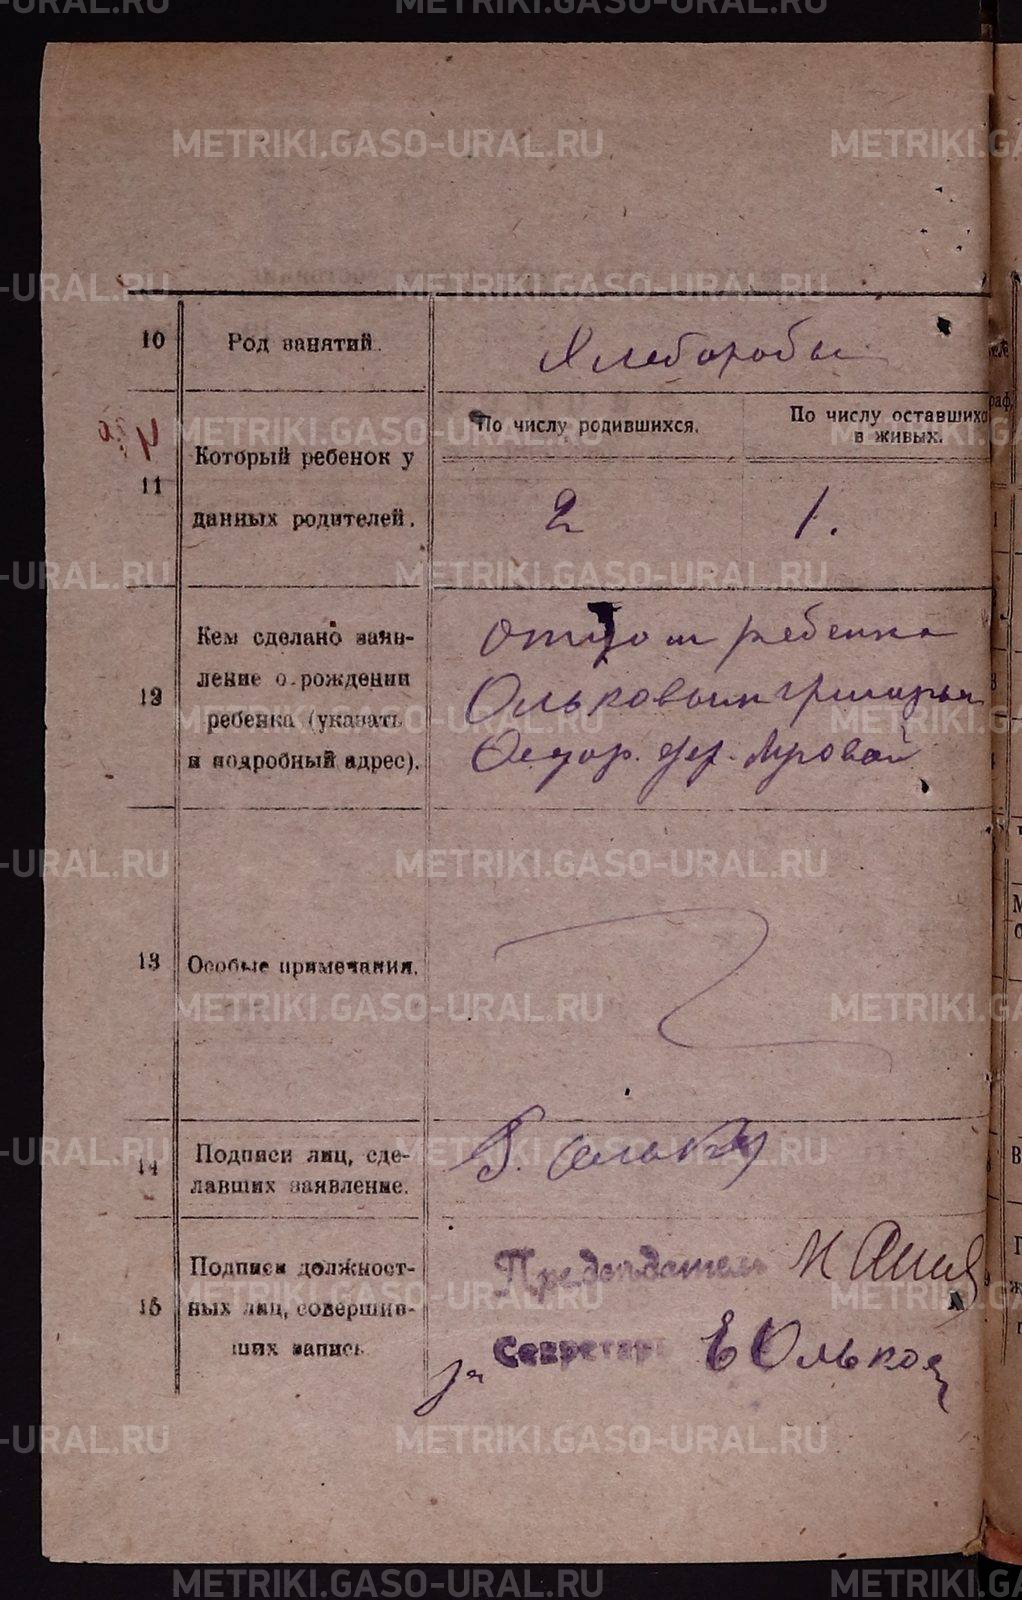 METRIKI.GASO-URAL.RU
10
Род занятий.
Хлеборобы
11
Который ребенок у
данных родителей.
По числу родившихся.
По числу оставшихс
в живых.
2
1.
12
Кем сделано заяв-
ление о рождении
ребенка (указать
и подробный адрес).
отцом ребенка
Ольковым Григорьем
Федор. дер. Муговай
13
Особые примечания.
14
Подписи лиц, сде-
лавших заявление.
Ольков
15
Подписи должност-
ных лиц, совершив-
ших запись
Председатель
за Секретарь Е Ольков